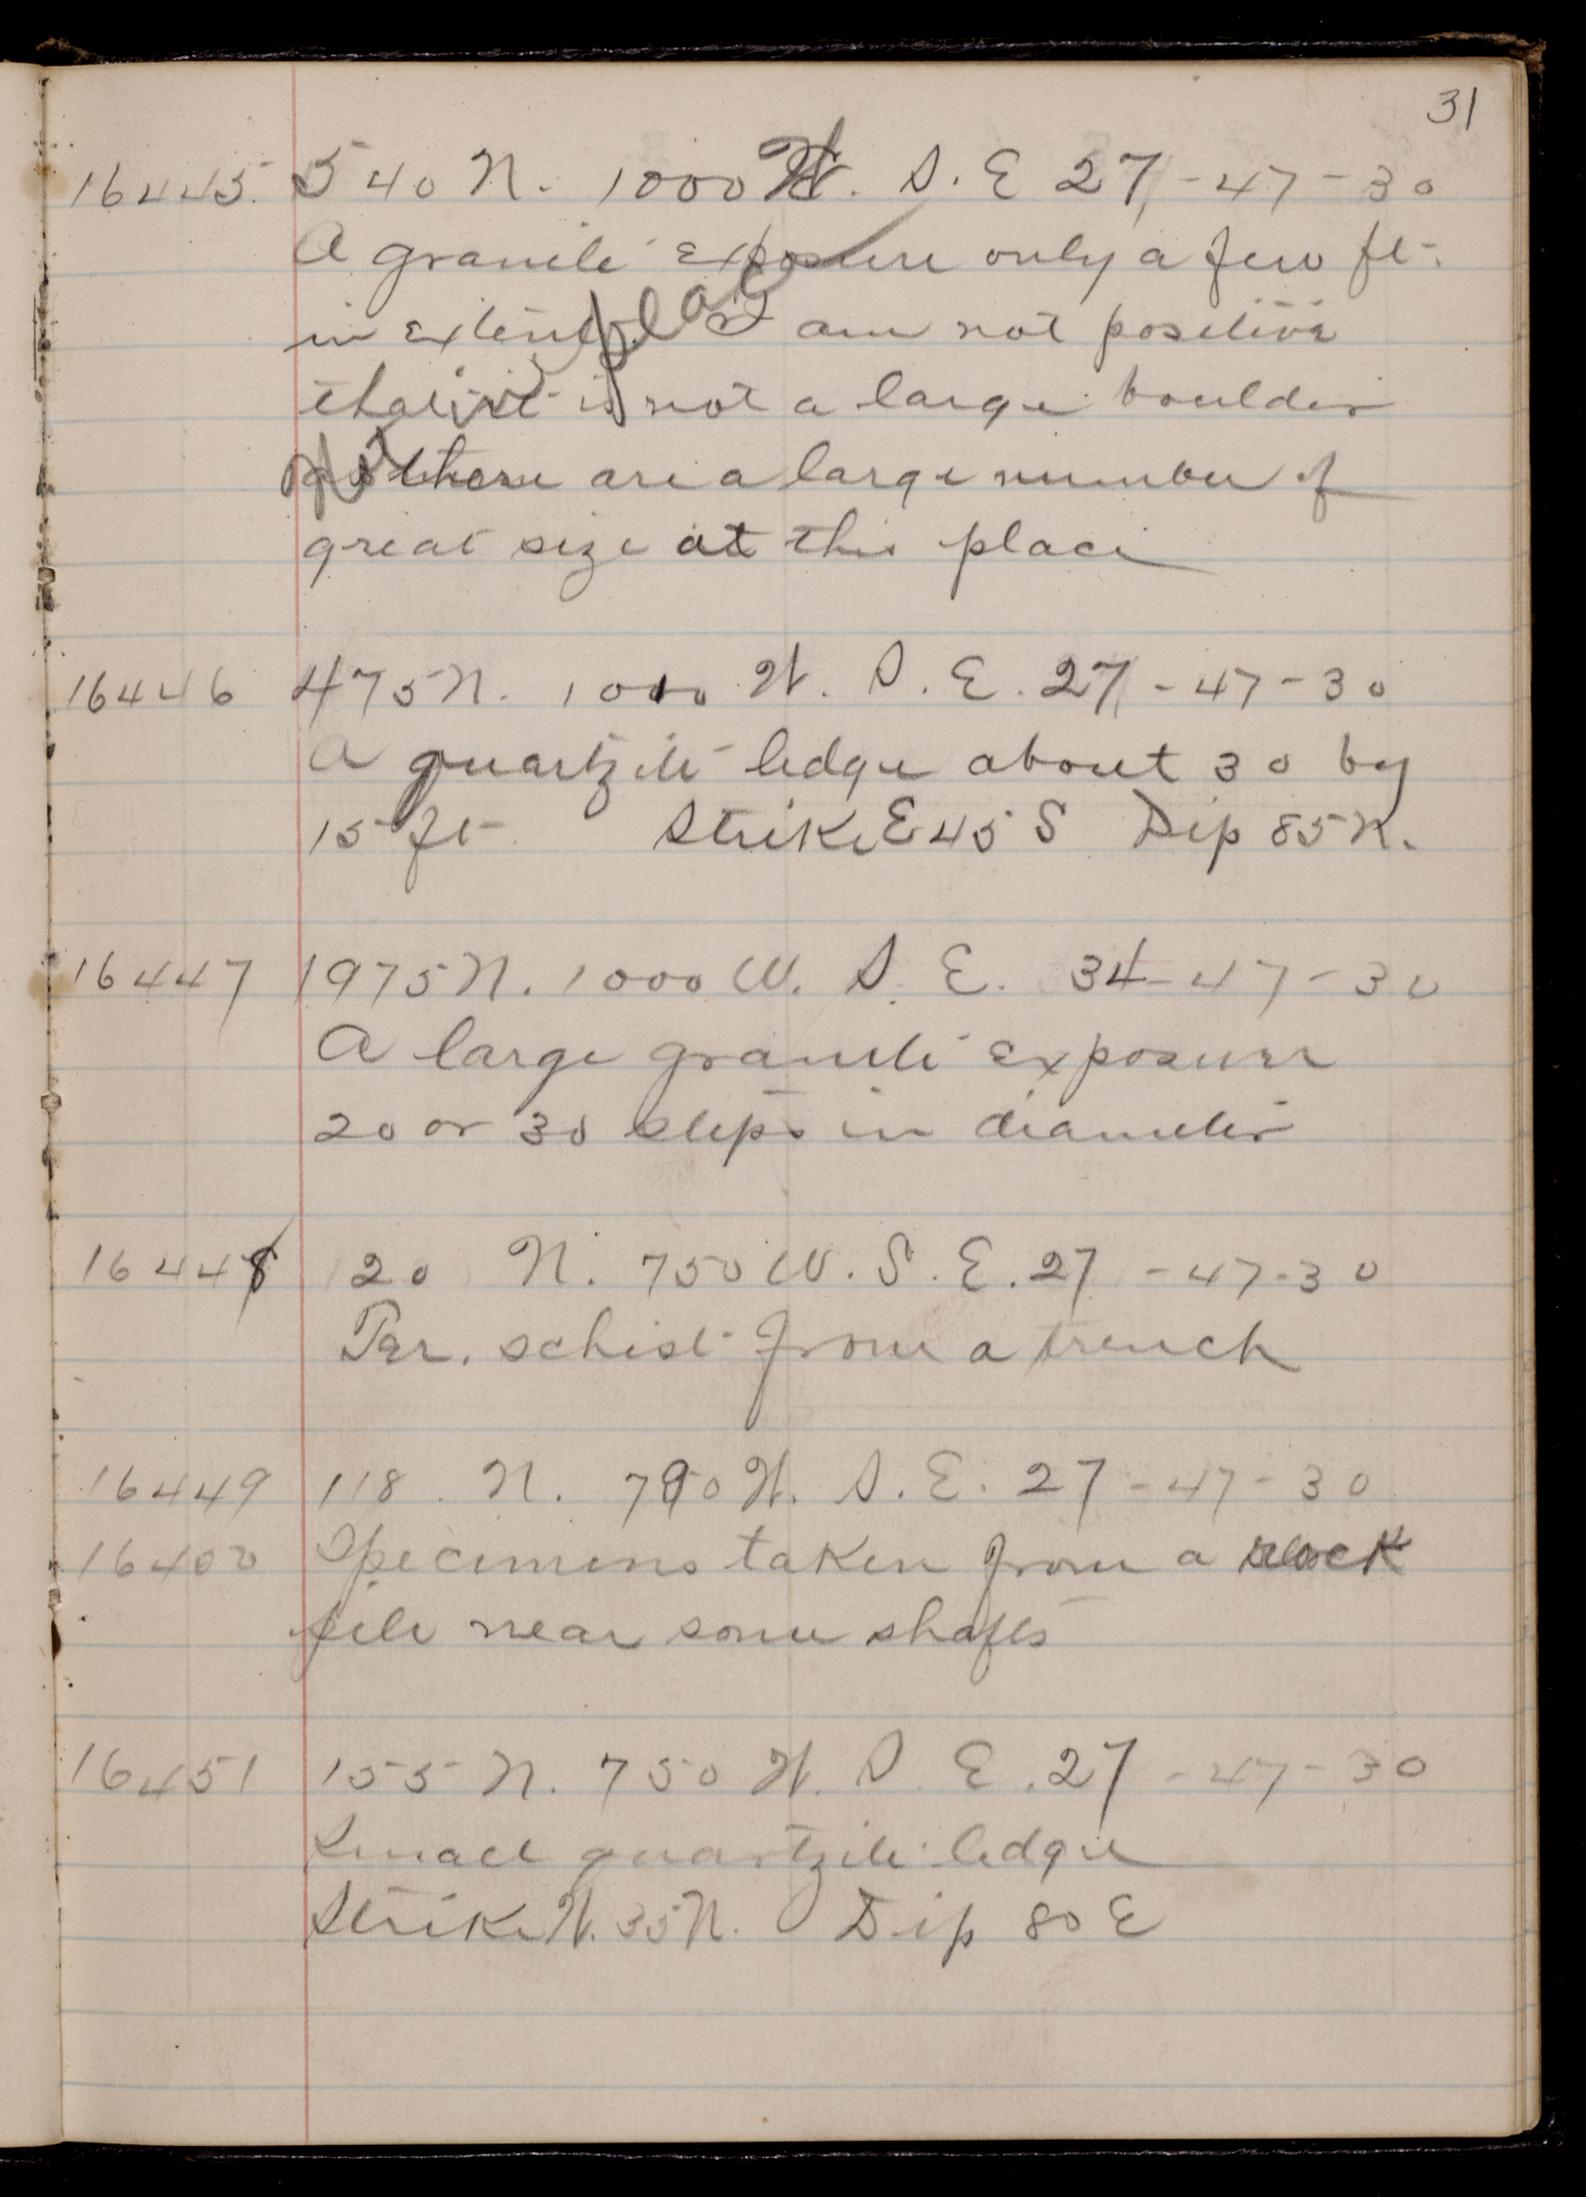 31
16445. 540 N. 1000 W. S. E 27-47-30
A granite exposure only a few ft.
in extent. I am not positive
that it is not a large boulder
as there are a large number of
great size at this place
not in place
16446 475 N. 1000 W. S. E. 27-47-30
A quartzite ledge about 30 by
15 ft. Strike E 45 S Dip 85 N.
16447 1975 N. 1000 W. S. E. 34-47-30
A large granite exposure
20 or 30 steps in diameter
16448 120 N. 750 W. S. E. 27-47-30
Fer. schist from a trench
16449 118 N. 790 W. S. E. 27-47-30
16400 Specimens taken from a rock
pile near some shafts
16451 155 N. 750 W. S. E. 27-47-30
Small quartzite ledge
Strike W. 35 N. Dip 80 E